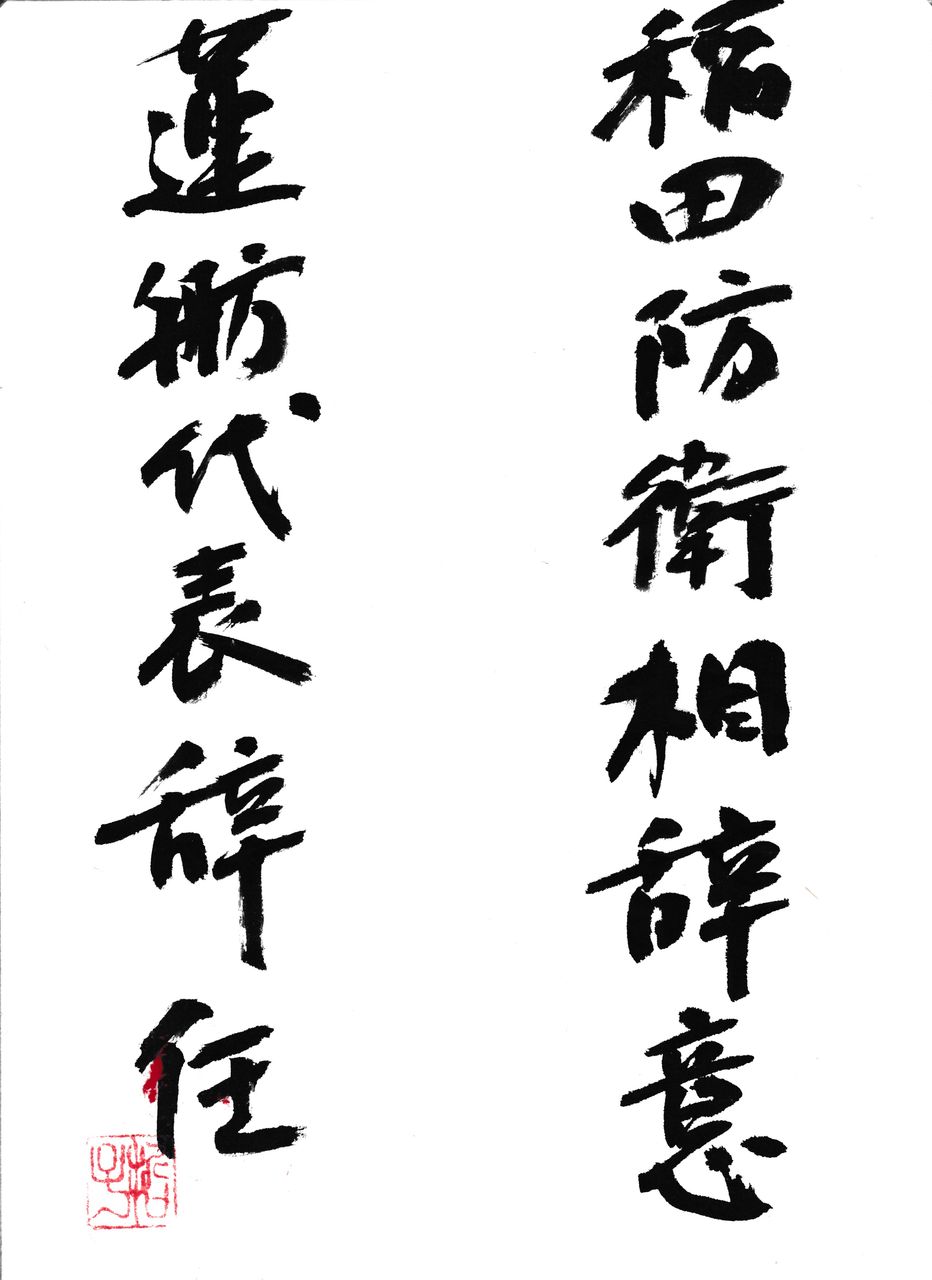 稲田防衛相辞意
蓮舫代表辞任